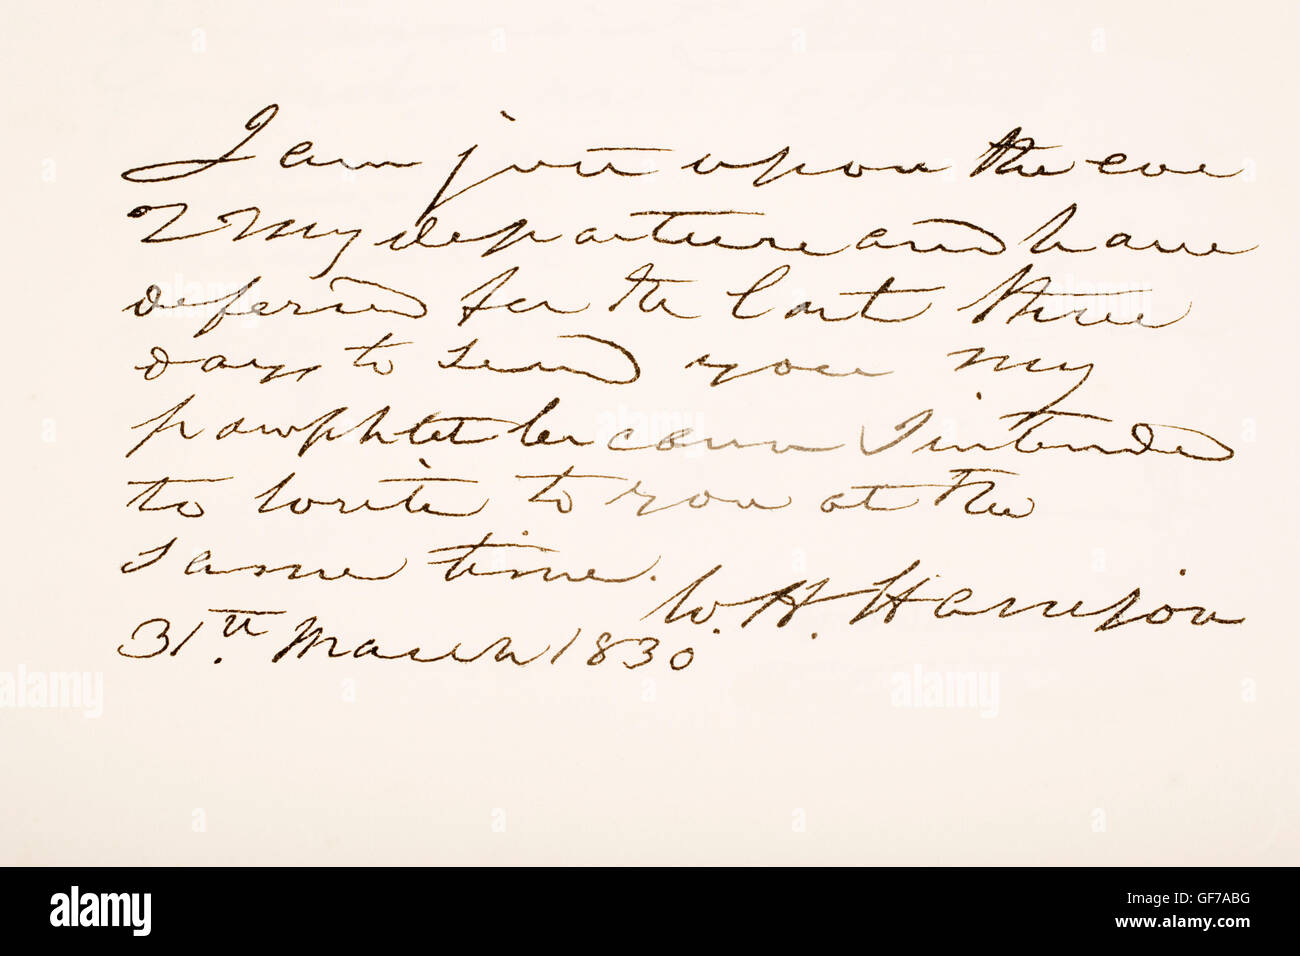 I am just upon the eve
of my departure and have
deferred for the last three
days to send you my
pamphlet because I intended
to write to you at the
same time.
W. H. Harrison
31th. March 1830
alamy
Image ID: GF7ABG
www.alamy.com